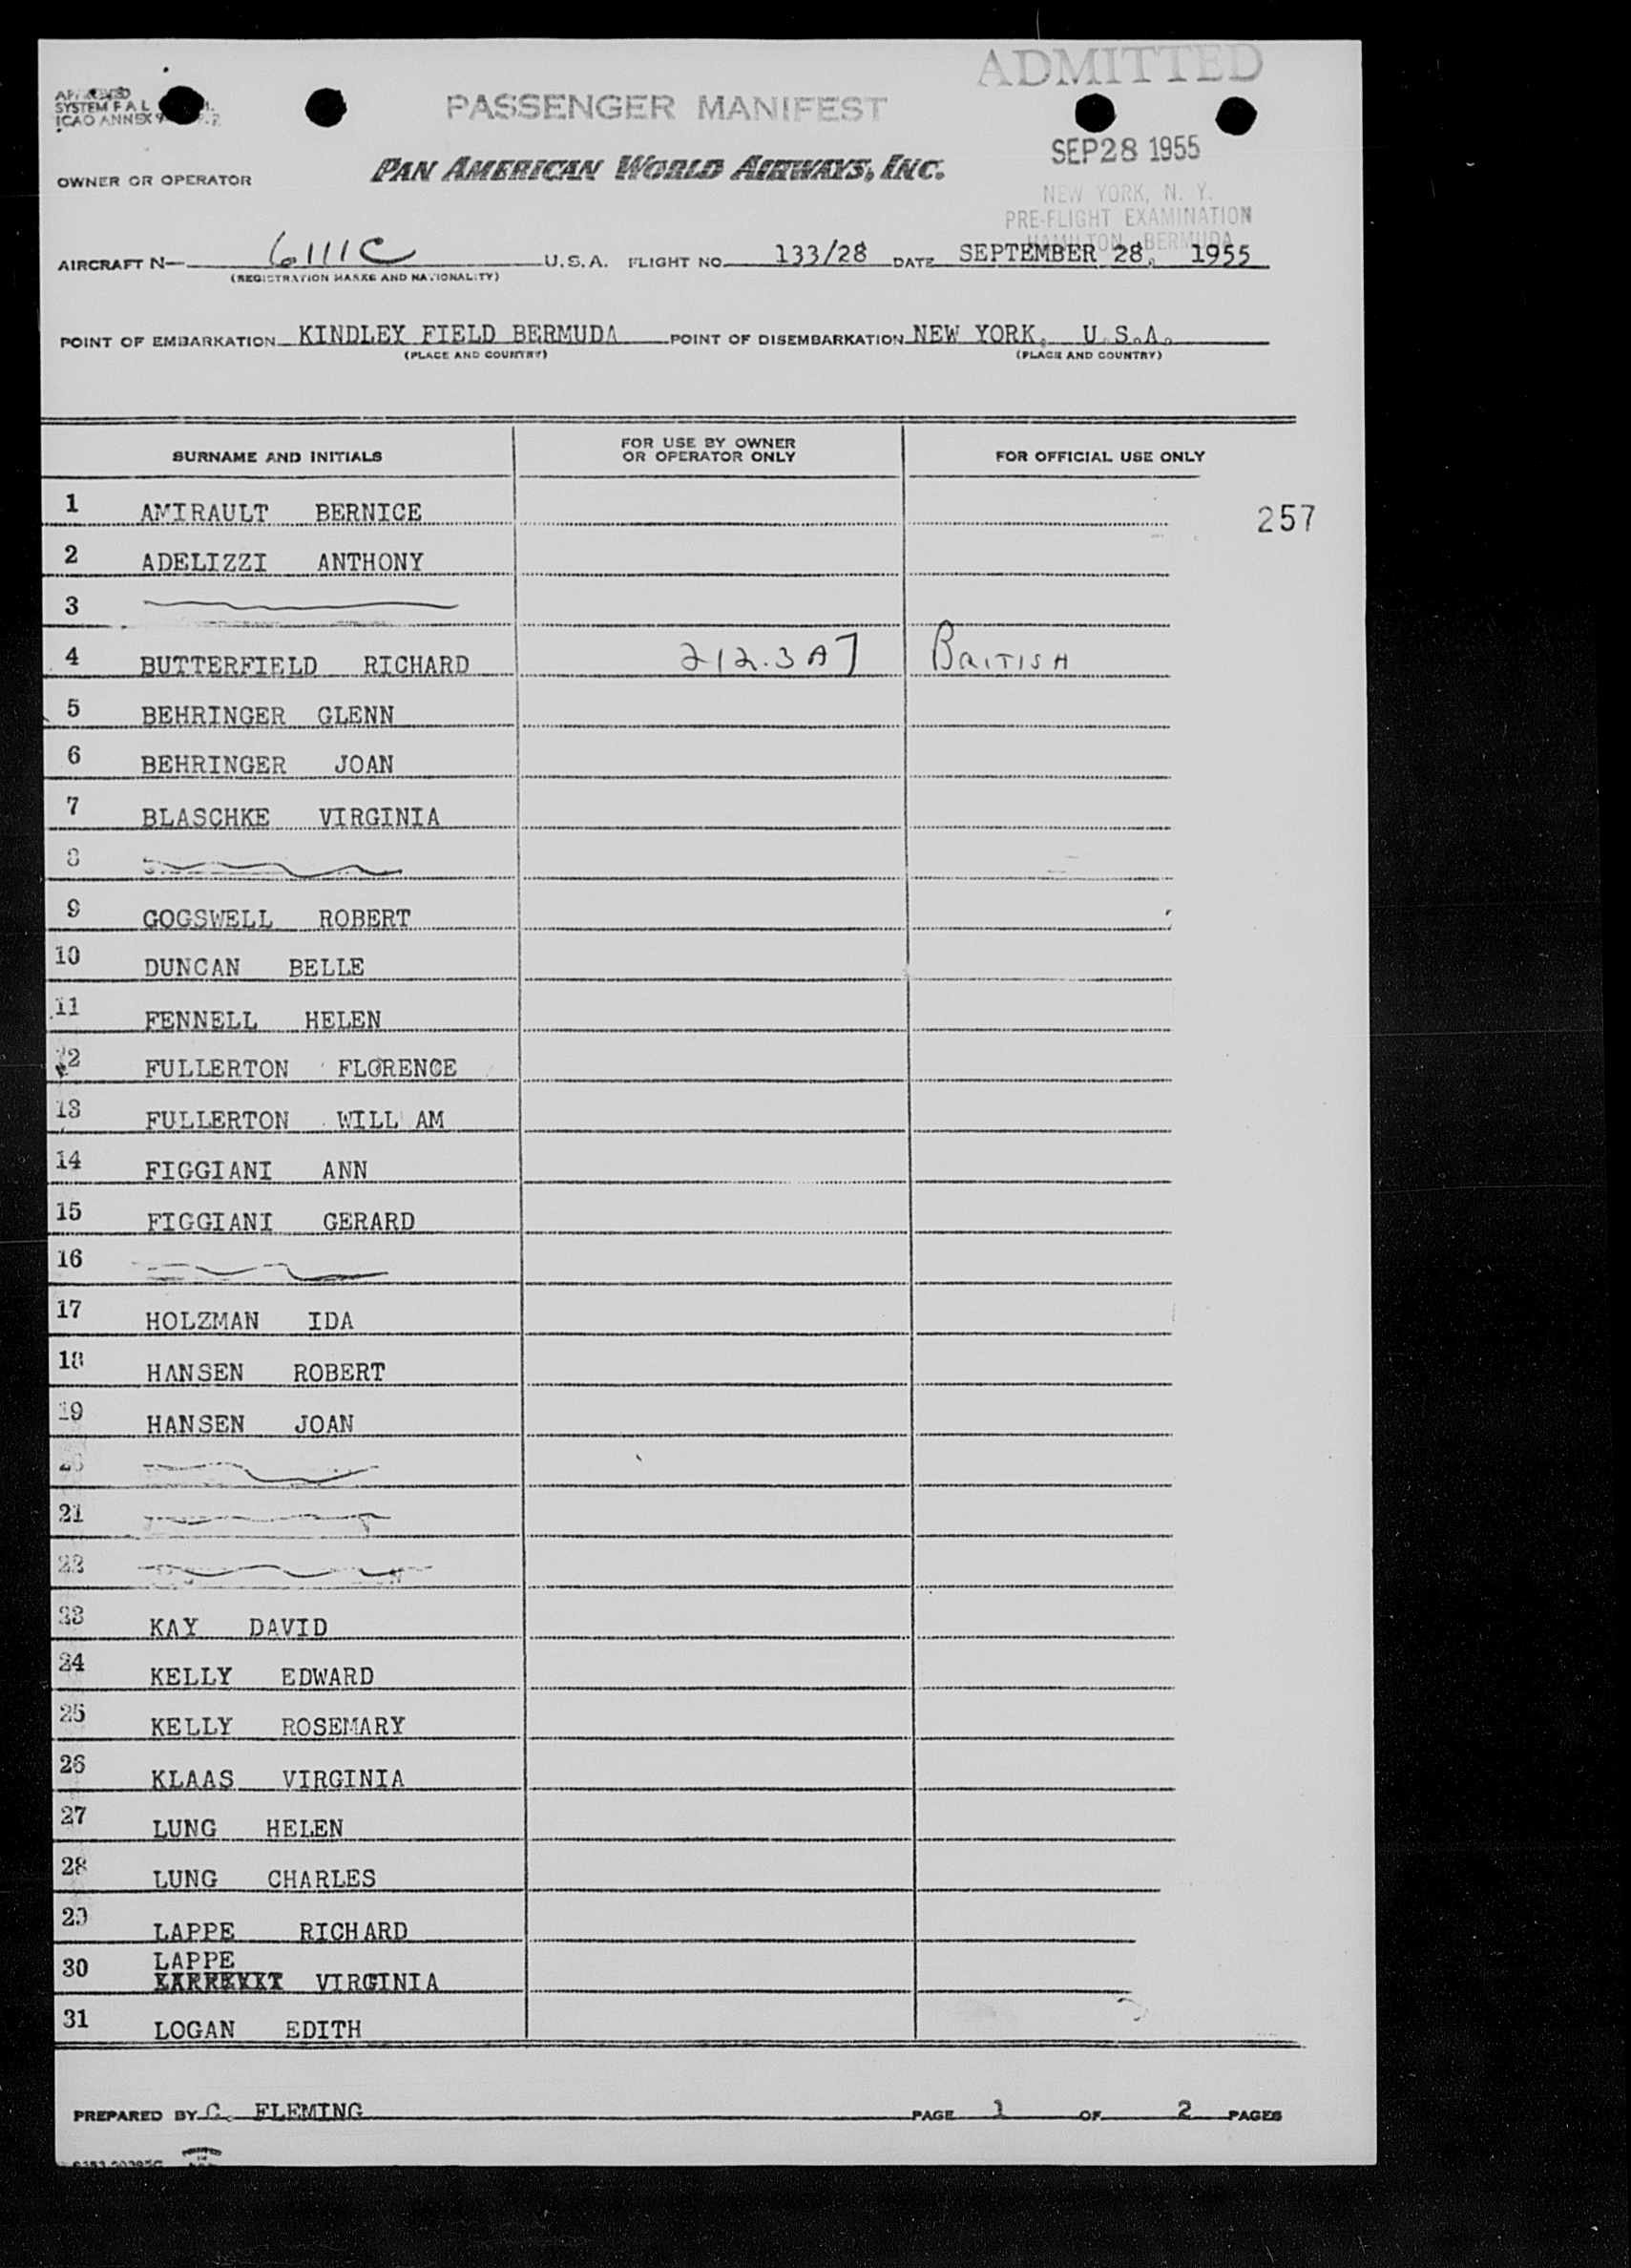 ADMITTED
SYSTEM F A L
ICAO ANNEX 9
PASSENGER MANIFEST
SEP 28 1955
OWNER OR OPERATOR PAN AMERICAN WORLD AIRWAYS, INC.
NEW YORK, N. Y.
PRE-FLIGHT EXAMINATION
HAMILTON, BERMUDA
AIRCRAFT N— 6111C U.S.A. FLIGHT NO. 133/28 DATE SEPTEMBER 28, 1955
(REGISTRATION MARKS AND NATIONALITY)
POINT OF EMBARKATION KINDLEY FIELD BERMUDA POINT OF DISEMBARKATION NEW YORK, U.S.A.
(PLACE AND COUNTRY) (PLACE AND COUNTRY)
SURNAME AND INITIALS FOR USE BY OWNER OR OPERATOR ONLY FOR OFFICIAL USE ONLY
1 AMIRAULT BERNICE 257
2 ADELIZZI ANTHONY
3
4 BUTTERFIELD RICHARD 212.3 A7 BRITISH
5 BEHRINGER GLENN
6 BEHRINGER JOAN
7 BLASCHKE VIRGINIA
8
9 GOGSWELL ROBERT
10 DUNCAN BELLE
11 FENNELL HELEN
12 FULLERTON FLORENCE
13 FULLERTON WILL AM
14 FIGGIANI ANN
15 FIGGIANI GERARD
16
17 HOLZMAN IDA
18 HANSEN ROBERT
19 HANSEN JOAN
20
21
22
23 KAY DAVID
24 KELLY EDWARD
25 KELLY ROSEMARY
26 KLAAS VIRGINIA
27 LUNG HELEN
28 LUNG CHARLES
29 LAPPE RICHARD
30 LAPPE VIRGINIA
31 LOGAN EDITH
PREPARED BY C. FLEMING PAGE 1 OF 2 PAGES